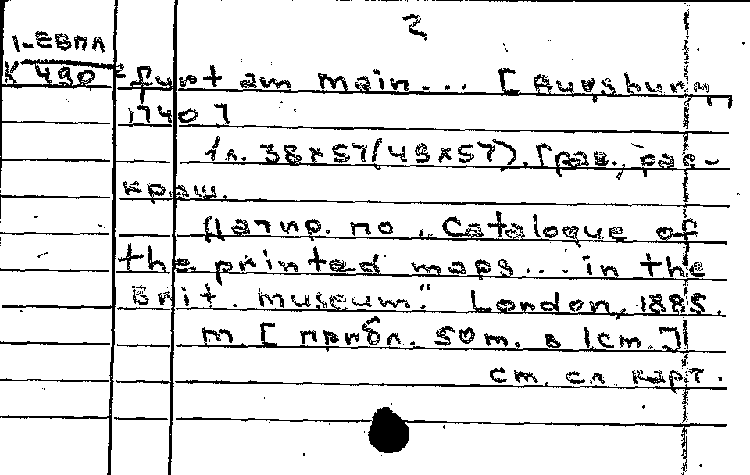 2
1-ЕВПЛ
К 490
furt am main... [Augsburg,
1740]
1л. 38x57(49x57). Грав., рас-
краш.
Датир. по „Catalogue of
the printed maps... in the
Brit. museum." London, 1885.
М. [прибл. 50m. в 1cm.]
см. сл. карт.